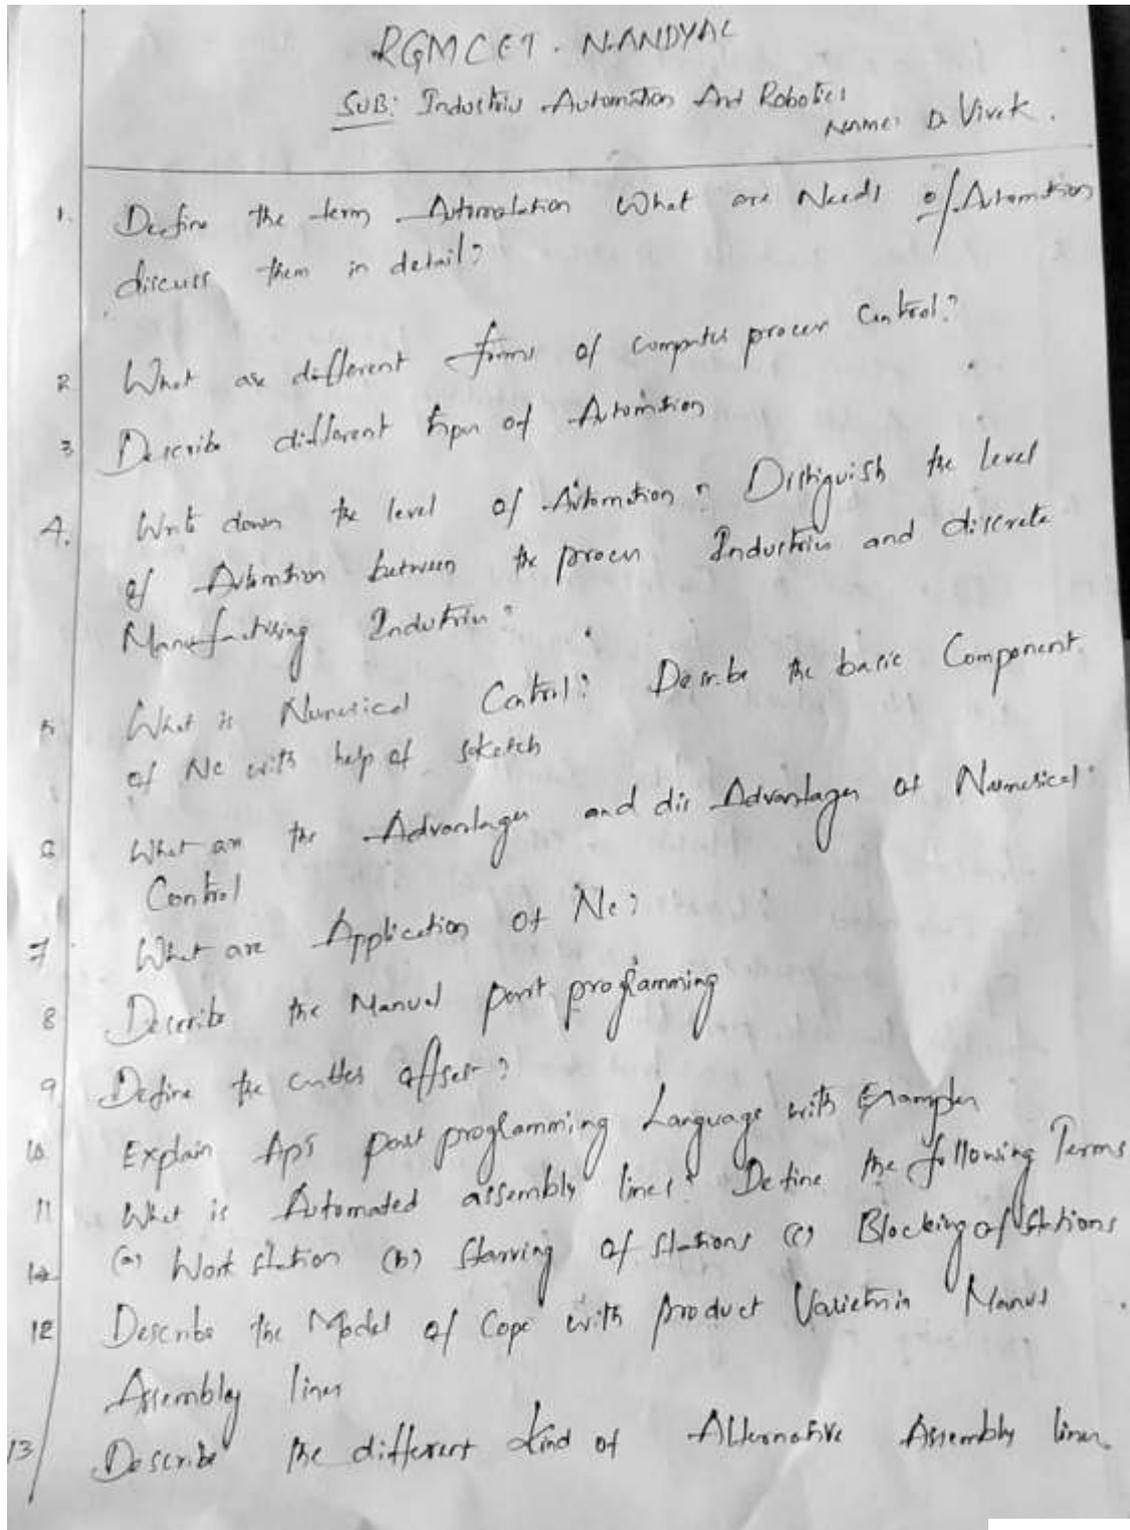 RGMCET. NANDYAL
SUB: Industrial Automation And Robotics
Name: D. Vivek.
1. Define the term Automation What are Needs of Automation
discuss them in detail?
2 What are different forms of computer process Control?
3 Describe different types of Automation
4. Write down the level of Automation? Distiguish the level
of Automation between the process Industries and discrete
Manufacturing Industries?
5 What is Numerical Control? Describe the basic Component
of Nc with help of sketch
6 What are the Advantages and dis Advantages of Numerical
Control
7 What are Application of Nc?
8 Describe the Manual part programming
9 Define the cutter offset?
10 Explain Apt part programming Language with Examples
11 What is Automated assembly lines? Define the following Terms
(a) Work station (b) Starving of stations (c) Blocking of stations
12 Describe the Model of Cope with product Varieties in Manual
Assembly lines
13 Describe the different kind of Alternative Assembly lines.